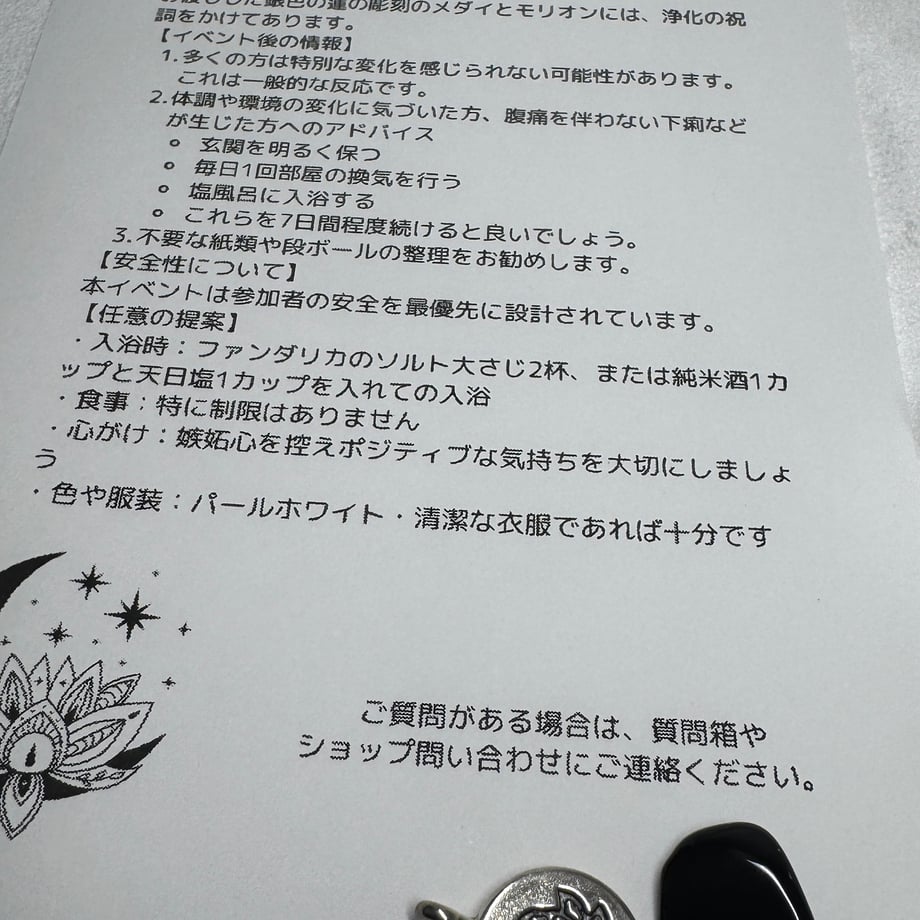 お渡しした銀色の蓮の彫刻のメダイとモリオンには、浄化の祝
詞をかけてあります。
【イベント後の情報】
1.多くの方は特別な変化を感じられない可能性があります。
これは一般的な反応です。
2.体調や環境の変化に気づいた方、腹痛を伴わない下痢など
が生じた方へのアドバイス
○ 玄関を明るく保つ
○ 毎日1回部屋の換気を行う
○ 塩風呂に入浴する
○ これらを7日間程度続けると良いでしょう。
3.不要な紙類や段ボールの整理をお勧めします。
【安全性について】
本イベントは参加者の安全を最優先に設計されています。
【任意の提案】
・入浴時：ファンダリカのソルト大さじ2杯、または純米酒1カ
ップと天日塩1カップを入れての入浴
・食事：特に制限はありません
・心がけ：嫉妬心を控えポジティブな気持ちを大切にしましょ
う
・色や服装：パールホワイト・清潔な衣服であれば十分です
ご質問がある場合は、質問箱や
ショップ問い合わせにご連絡ください。